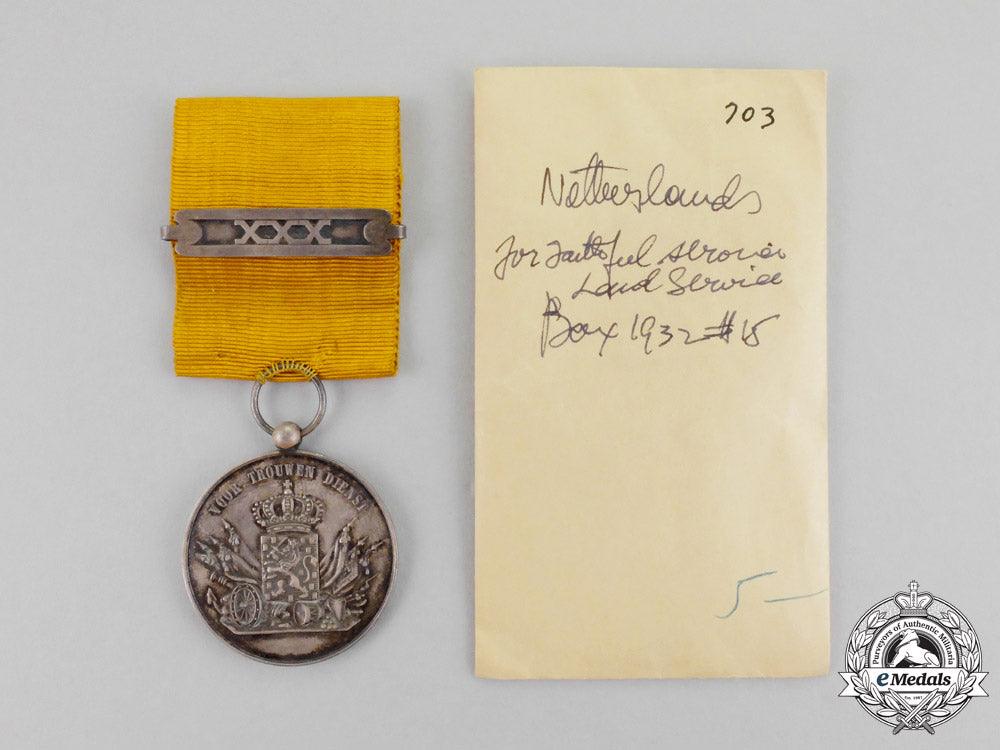 XXX
VOOR TROUWEN DIENST
703
Netherlands
for faithful service
Land Service
Box 1932 #15
5 —
Purveyors of Authentic Militaria
eMedals
Est. 1987